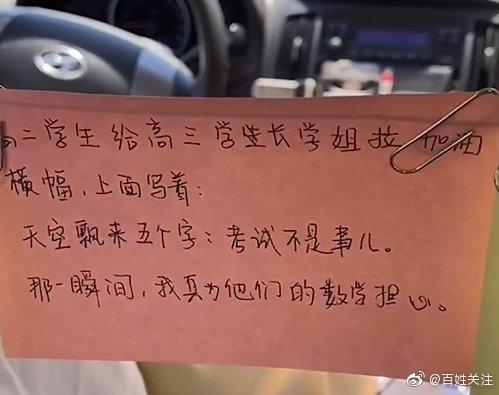 高二学生给高三学生长学姐拉加油
横幅,上面写着:
天空飘来五个字:考试不是事儿。
那一瞬间,我真为他们的数学担心。
@百姓关注